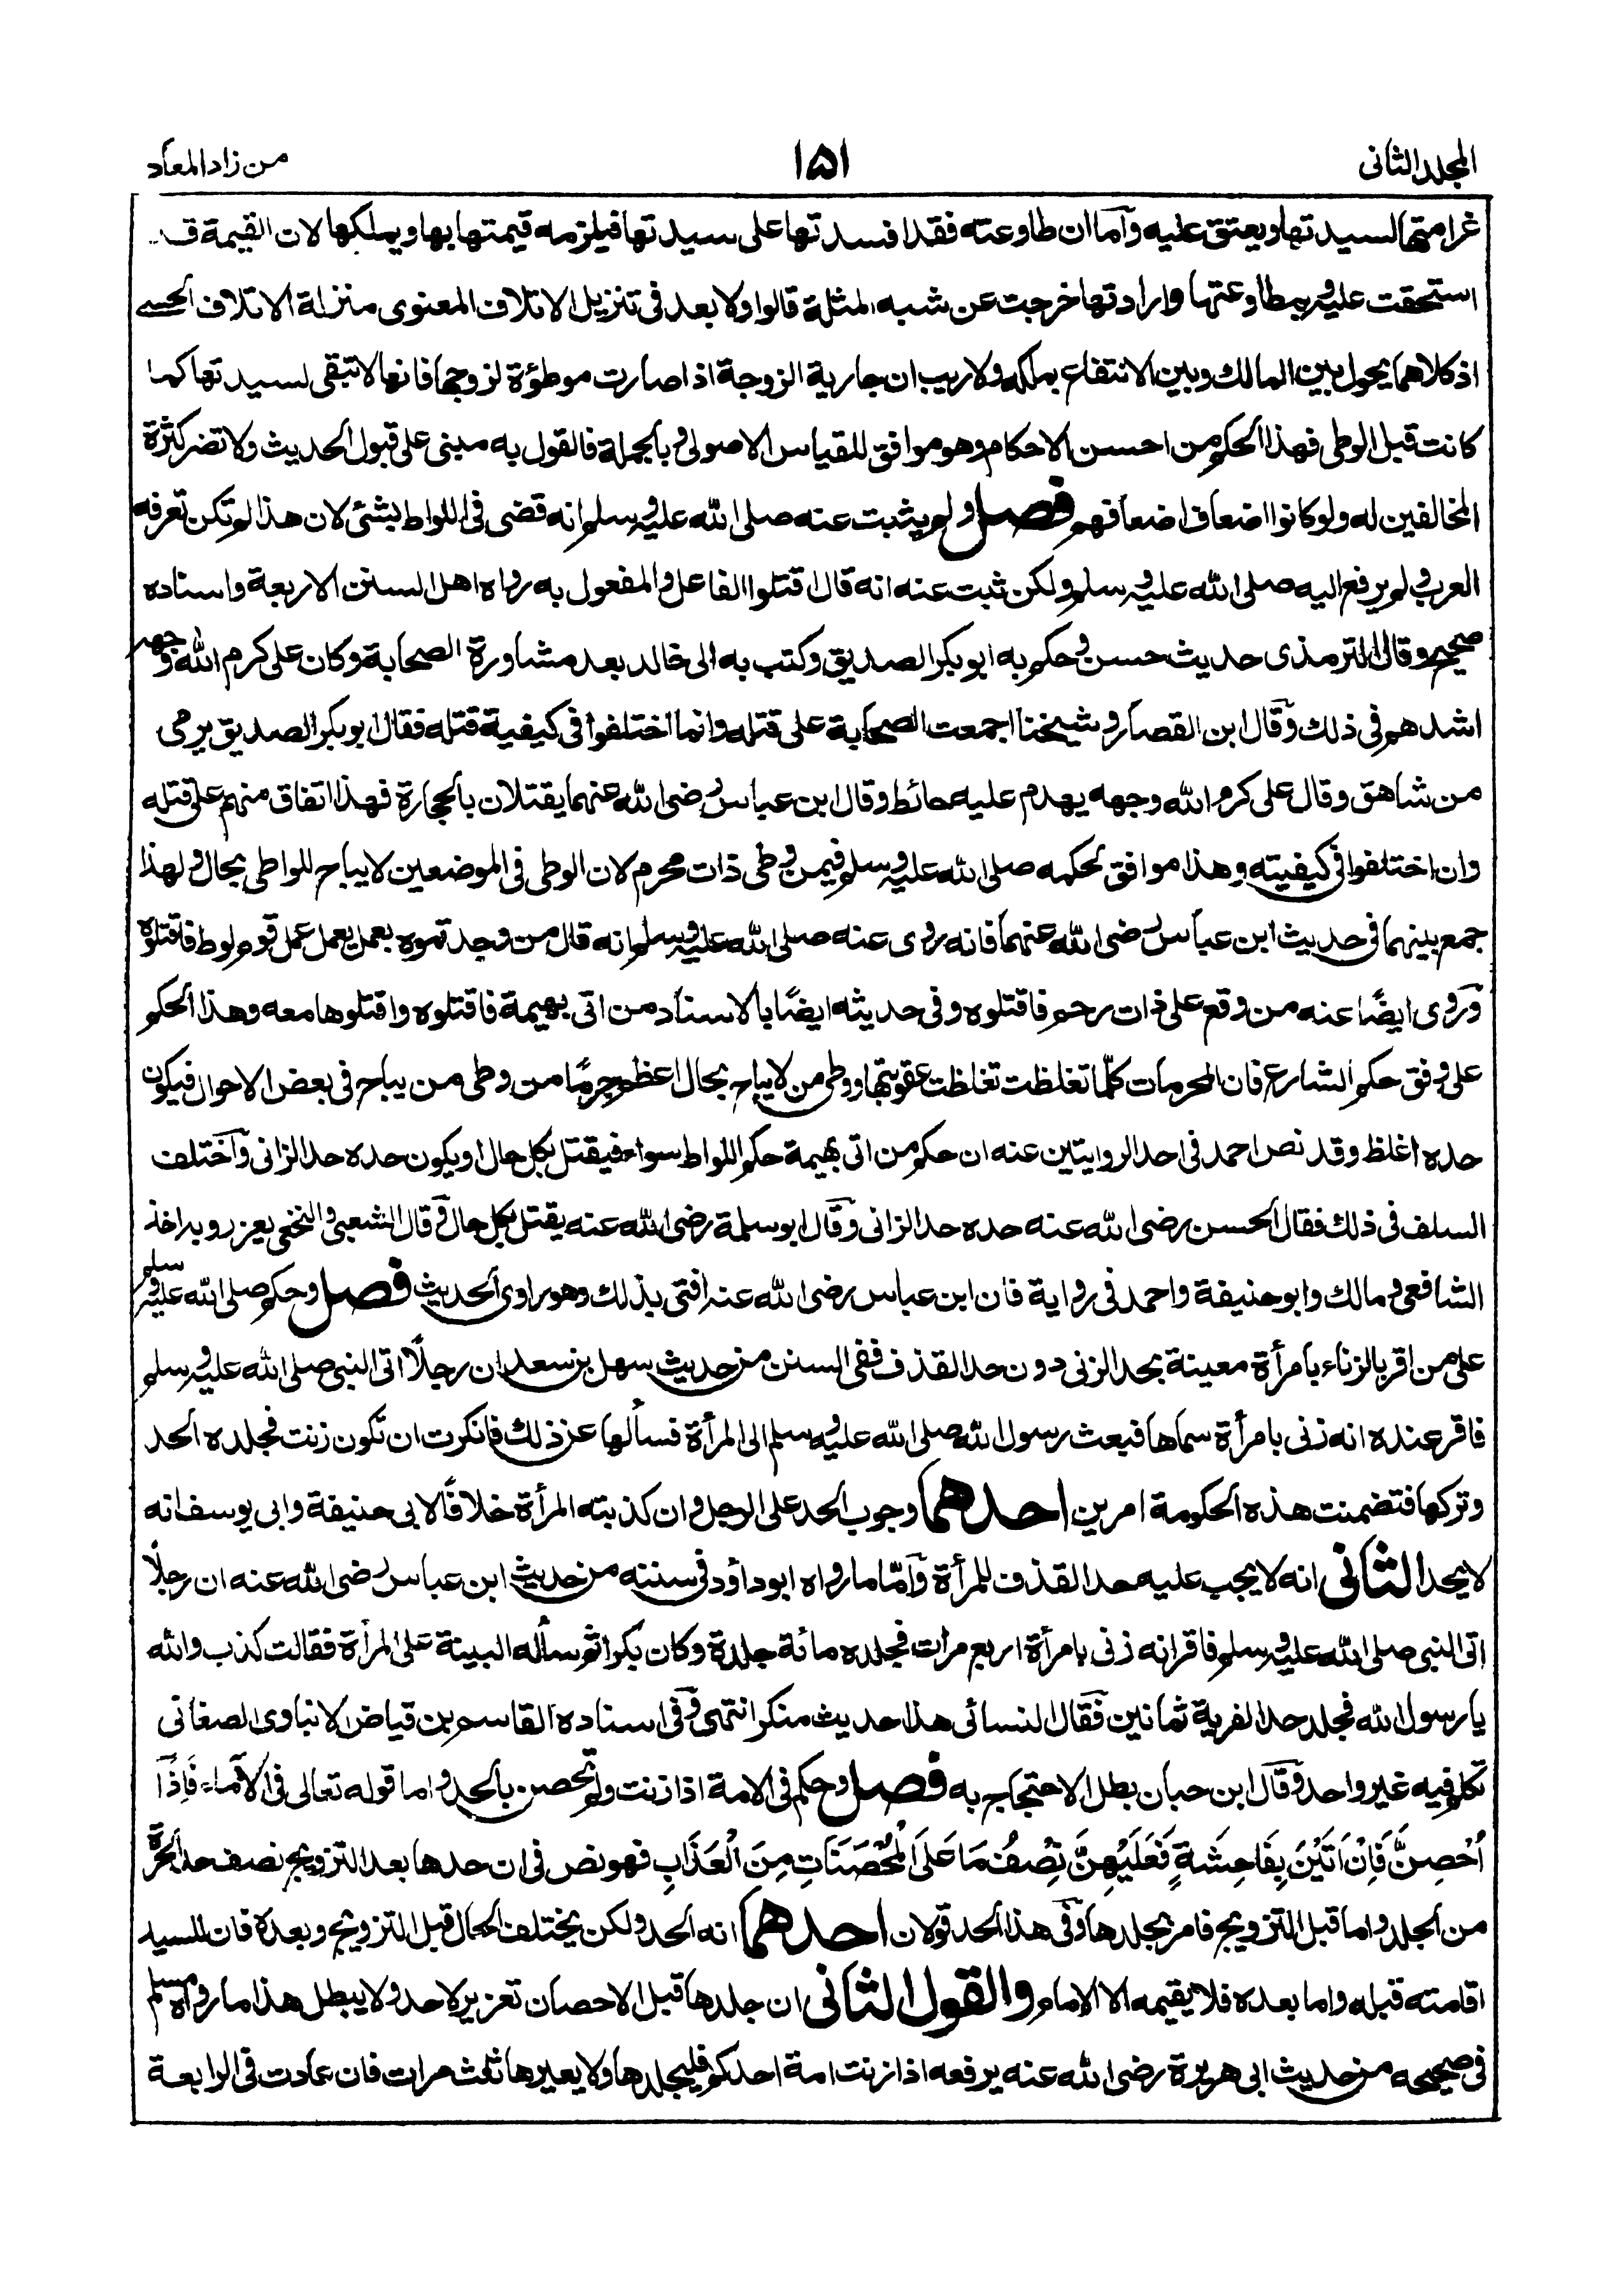 المجلد الثانى
١٥١
من زاد المعاد
غرامتها لسيدتها ويعتق عليه وآما ان طاوعته فقد افسدتها على سيدتها فيلزمه قيمتها بها ويملكها لان القيمة قـ
استحقت عليه وبمطاوعتها وارادتها خرجت عن شبه المثلة قالوا ولا بعد فى تنزيل الاتلاف المعنوى منزلة الاتلاف الحسى
اذ كلاهما يحول بين المالك وبين الانتفاع بملكه ولا ريب ان جارية الزوجة اذا صارت موطؤة لزوجها فانها لا تبقى لسيدتها كما
كانت قبل الوطى فهذا الحكم من احسن الاحكام وهو موافق للقياس الاصولى وبالجملة فالقول به مبنى على قبول الحديث ولا تضر كثرة
المخالفين له ولو كانوا اضعاف اضعافهم فصل ولم يثبت عنه صلى الله عليه وسلم انه قضى فى اللواط بشئ لان هذا لم تكن تعرفه
العرب ولم يرفع اليه صلى الله عليه وسلم ولكن ثبت عنه انه قال اقتلوا الفاعل والمفعول به رواه اهل السنن الاربعة واسناده
صحيح وقال الترمذى حديث حسن وحكم به ابو بكر الصديق وكتب به الى خالد بعد مشاورة الصحابة وكان على كرم الله وجهه
اشدهم فى ذلك وقال ابن القصار وشيخنا اجمعت الصحابة على قتله وانما اختلفوا فى كيفية قتله فقال ابو بكر الصديق يرمى
من شاهق وقال على كرم الله وجهه يهدم عليه حائط وقال ابن عباس رضى الله عنهما يقتلان بالحجارة فهذا اتفاق منهم على قتله
وان اختلفوا فى كيفيته وهذا موافق لحكمه صلى الله عليه وسلم فيمن وطى ذات محرم لان الوطى فى الموضعين لا يباح للواطى بحال ولهذا
جمع بينهما فى حديث ابن عباس رضى الله عنهما فانه روى عنه صلى الله عليه وسلم انه قال من وجدتموه يعمل يعمل عمل قوم لوط فاقتلوه
وروى ايضًا عنه من وقع على ذات رحم فاقتلوه وفى حديثه ايضًا بالاسناد من اتى بهيمة فاقتلوه واقتلوها معه وهذا الحكم
على وفق حكم الشارع فان المحرمات كلّما تغلظت تغلظت عقوبتها ووطى من لا يباح بحال اعظم جرمًا من وطى من يباح فى بعض الاحوال فيكون
حده اغلظ وقد نص احمد فى احد الروايتين عنه ان حكم من اتى بهيمة حكم اللواط سواء فيقتل بكل حال او يكون حده حد الزانى وآختلف
السلف فى ذلك فقال الحسن رضى الله عنه حده حد الزانى وقال ابو سلمة رضى الله عنه يقتل بكل حال وقال الشعبى والنخعى يعزر وبه اخذ
الشافعى ومالك وابو حنيفة واحمد فى رواية فان ابن عباس رضى الله عنه افتى بذلك وهو راوى الحديث فصل وحكم صلى الله عليه وسلم
على من اقر بالزناء بامرأة معينة بحد الزنى دون حد القذف ففى السنن من حديث سهل بن سعد ان رجلًا اتى النبى صلى الله عليه وسلم
فاقر عنده انه زنى بامرأة سماها فبعث رسول الله صلى الله عليه وسلم الى المرأة فسألها عن ذلك فانكرت ان تكون زنت فجلده الحد
وتركها فتضمنت هذه الحكومة امرين احدهما وجوب الحد على الرجل وان كذبته المرأة خلافًا لابى حنيفة وابى يوسف انه
لا يحد الثانى انه لا يجب عليه حد القذف للمرأة وآمّا ما رواه ابو داؤد فى سننه من حديث ابن عباس رضى الله عنه ان رجلًا
اتى النبى صلى الله عليه وسلم فاقر انه زنى بامرأة اربع مرات فجلده مائة جلدة وكان بكرا ثم سأله البينة على المرأة فقالت كذب والله
يا رسول الله فجلد حد الفرية ثمانين فقال النسائى هذا حديث منكر انتهى وفى اسناده القاسم بن فياض الانباوى الصغانى
تكلم فيه غير واحد وقال ابن حبان بطل الاحتجاج به فصل وحكم فى الامة اذا زنت ولم تحصن بالحد واما قوله تعالى فى الآماء فَاِذَآ
اُحْصِنَّ فَاِنْ اَتَيْنَ بِفَاحِشَةٍ فَعَلَيْهِنَّ نِصْفُ مَا عَلَى الْمُحْصَنَاتِ مِنَ الْعَذَابِ فهو نص فى ان حدها بعد التزويج نصف حد الحرة
من الجلد واما قبل التزويج فامر بجلدها وفى هذا الحد قولان احدهما انه الحد ولكن يختلف الحال قبل التزويج وبعده فان للسيد
اقامته قبله واما بعده فلا يقيمه الا الامام والقول الثانى ان جلدها قبل الاحصان تعزير لا حد ولا يبطل هذا ما رواه مسلم
فى صحيحه من حديث ابى هريرة رضى الله عنه يرفعه اذا زنت امة احدكم فليجلدها ولا يعيرها ثلث مرات فان عادت فى الرابعة